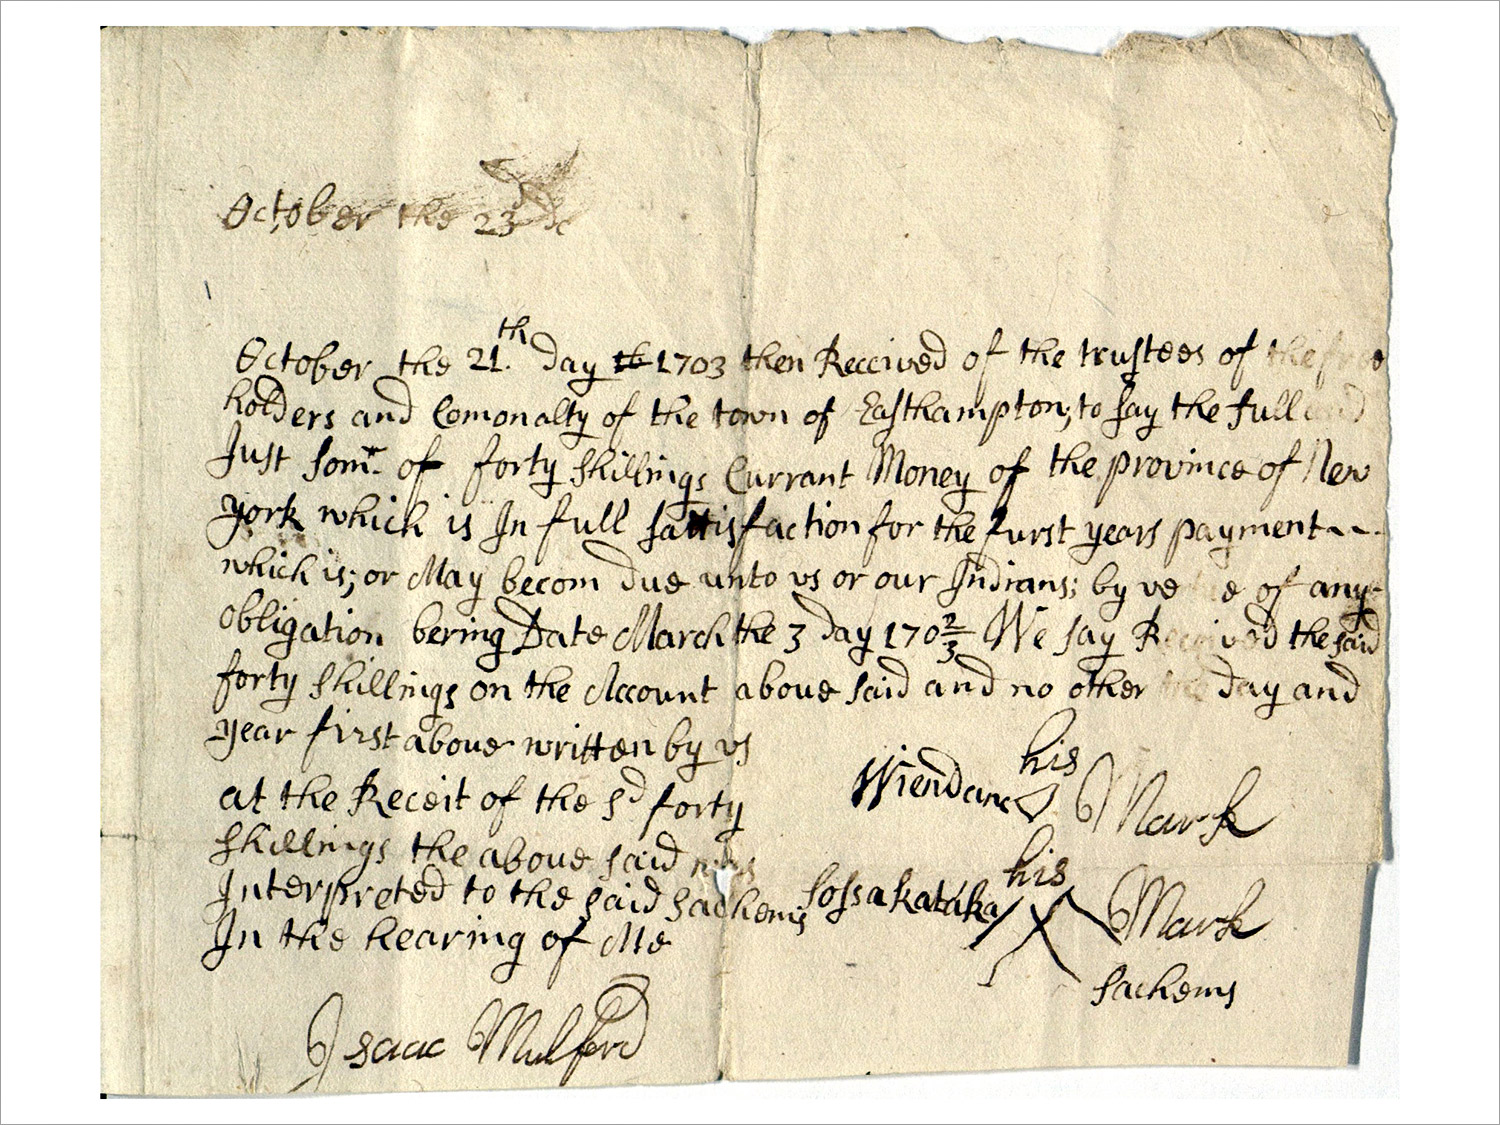 October the 23
October the 21th day 1703 then Received of the trustees of the free
holders and Comonalty of the town of Easthampton; to say the full and
Just som of forty shillings Currant Money of the province of New
york which is In full sattisfaction for the furst years payment
which is; or May becom due unto us or our Indians; by of any
obligation bering Date March the 3 day 170 2/3 We say Received the said
forty shillings on the Account above said and no other the day and
year first above written by us
at the Receit of the sd forty
shillings the above said was
Interpreted to the said sachems
In the hearing of Me
Isaac Mulford
his
Wiendanc Mark
his
Sossakataka Mark
sachems